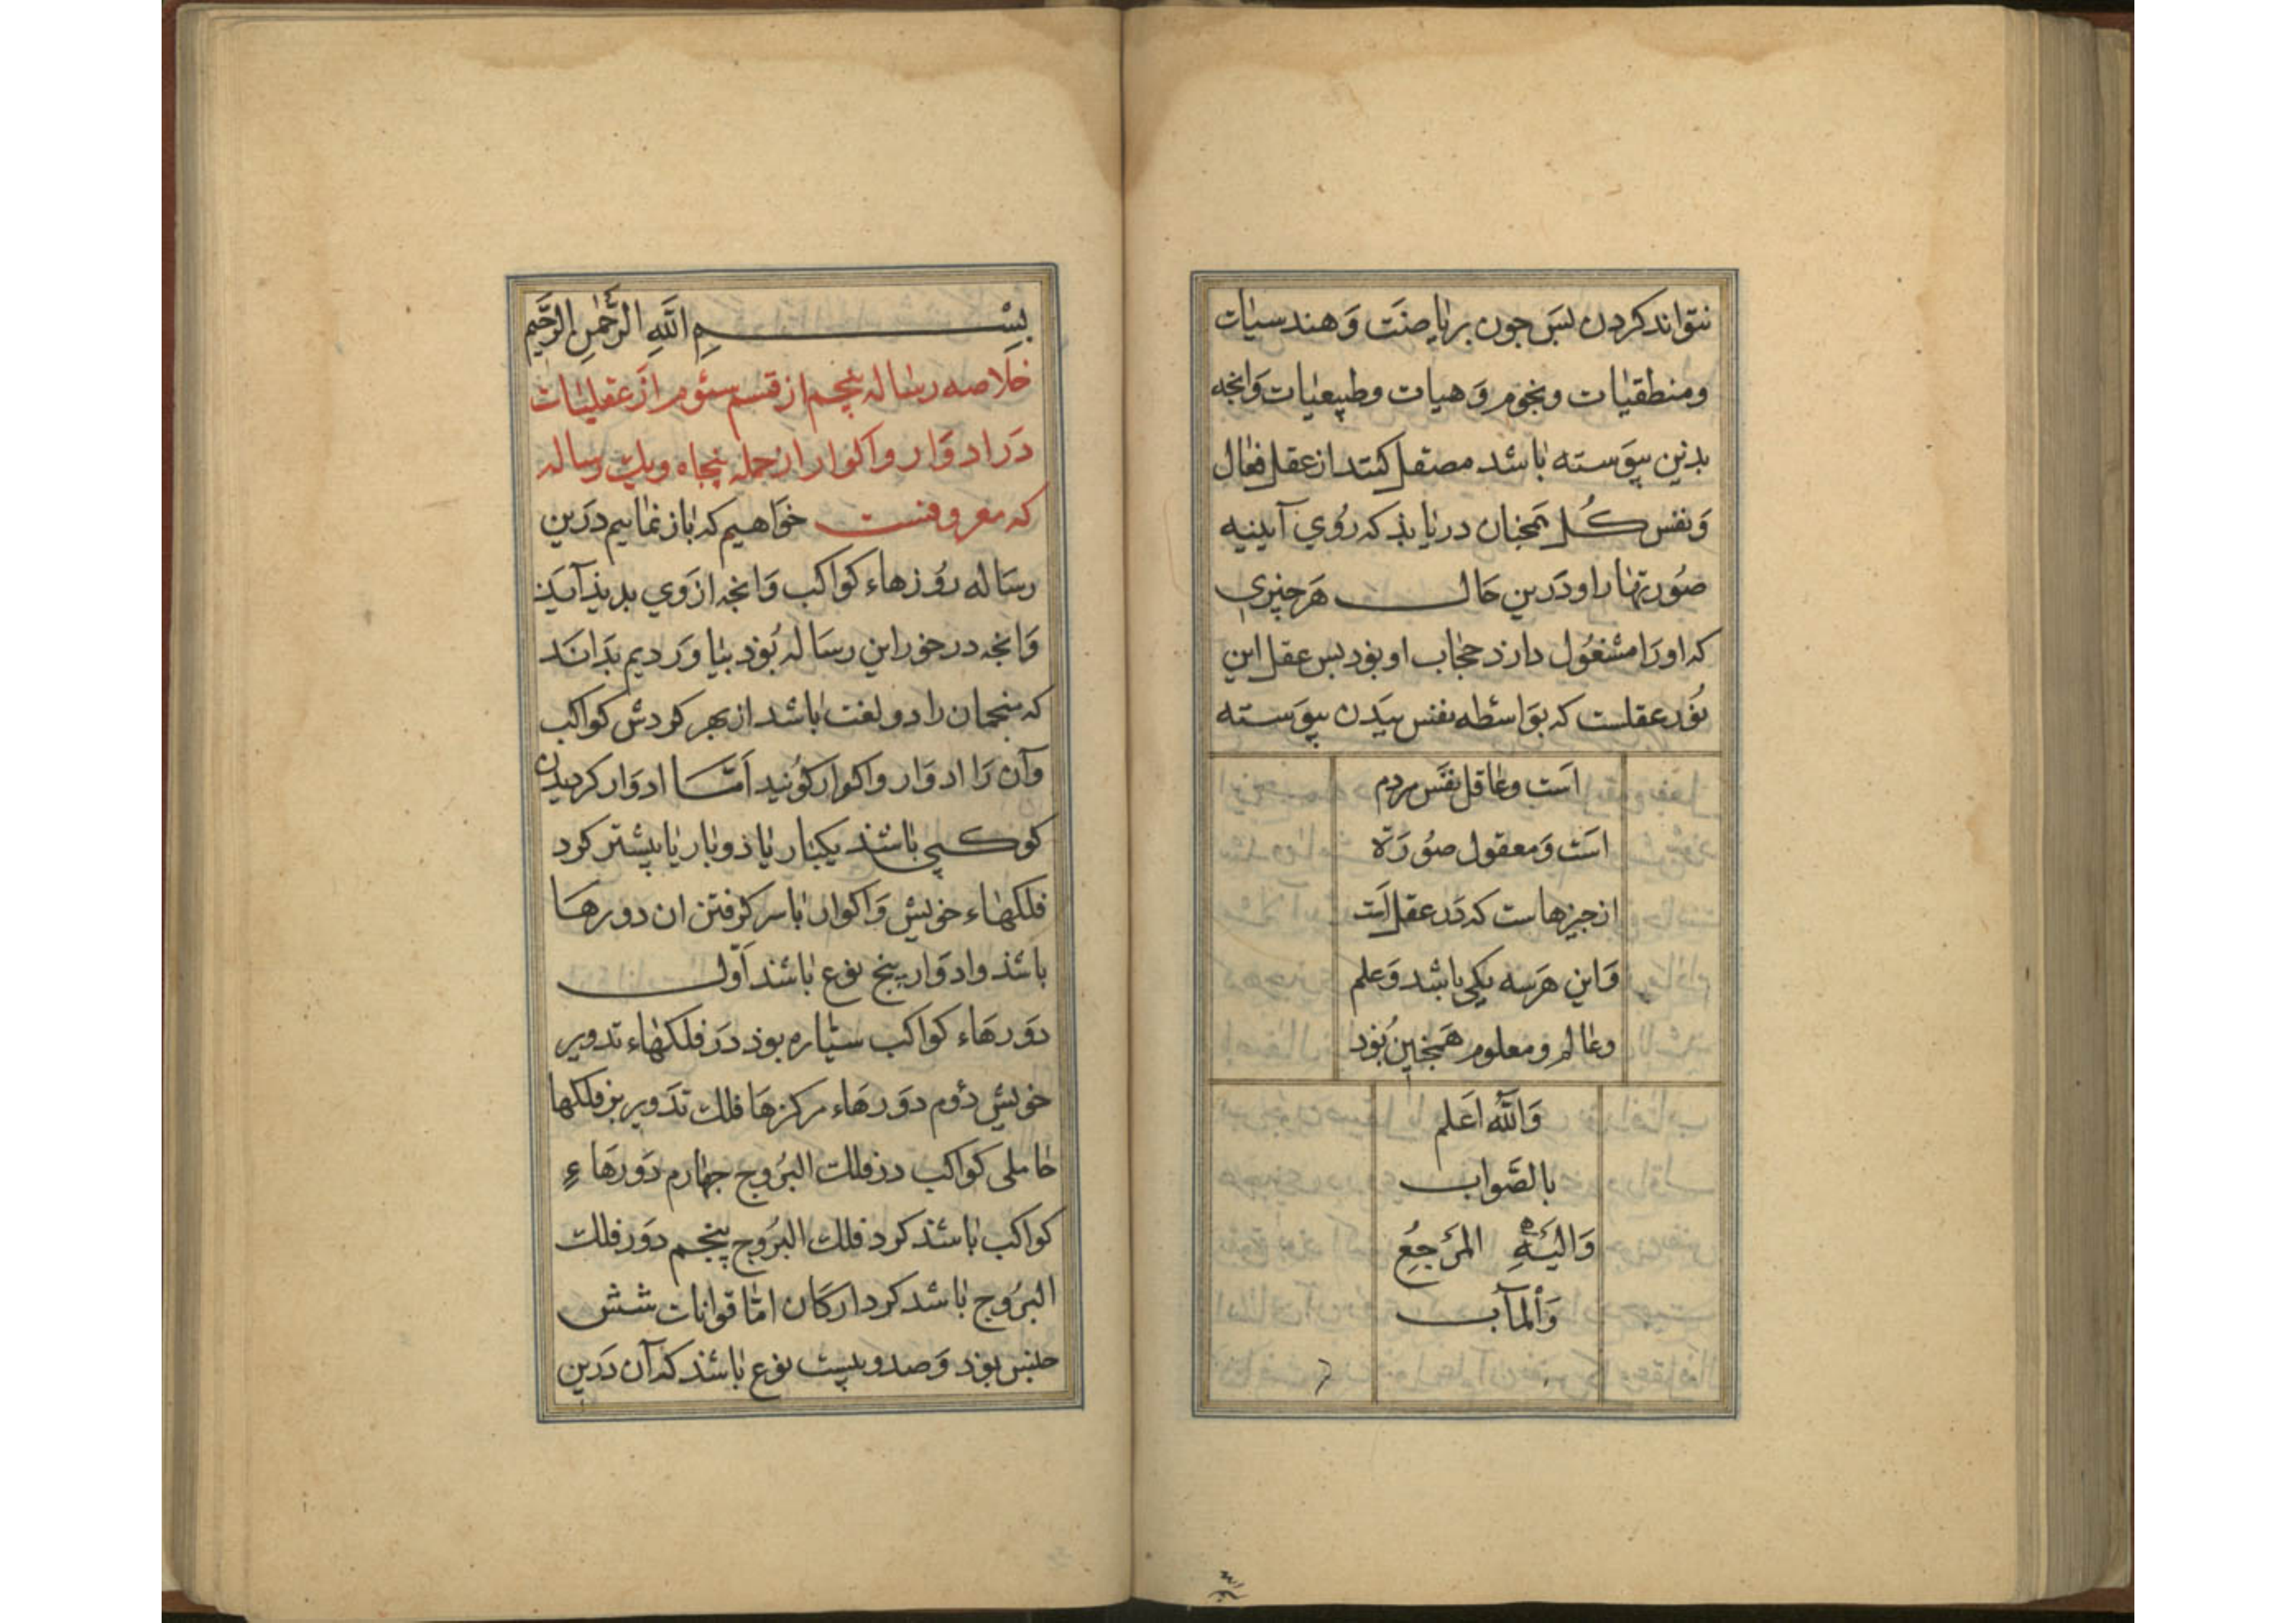 نتواند کردن بس جون بریاضت و هندسیات
ومنطقیات ونجوم و هیات وطبیعیات وانجه
بدین پیوسته باشد مصتقل کنند از عقل فعال
ونفس کل همجنان دریابد که روی آیینه
صورتها را ودرین حال هر چیزی
که او را مشغول دارد حجاب او بود بس عقل این
نور عقلست که بواسطه نفس ببدن پیوسته
است وعاقل نفس مردم
است ومعقول صورة
از جیزهاست که در عقل است
واین هر سه یکی باشد وعلم
وعالم ومعلوم همجنین بود
والله اعلم
بالصواب
والیه المرجع
والمآب
بسم الله الرحمن الرحیم
خلاصه رساله پنجم از قسم سئوم از عقلیات
در ادوار واکوار از جمله پنجاه ویک رساله
که معروفست خواهیم که باز نماییم درین
رساله روزهاء کواکب وانجه از وی بدیذ آیذ
وانجه در خور این رساله بود بیاوردیم بدانند
که منجمان را دو لغت باشد از بهر کردش کواکب
وآن را ادوار واکوار کویند اما ادوار کردیدن
کوکبی باشذ یکبار یا ذو بار یا بیشتر کرد
فلکهاء خویش واکوار باسر کرفتن ان دورها
باشذ وادوار پنج نوع باشند اول
دورهاء کواکب سیاره بوذ در فلکهاء تدویر
خویش دوم دورهاء مرکزها فلک تدویر بر فلکها
حاملی کواکب در فلک البروج جهارم دورهاء
کواکب باشذ کرد فلک البروج پنجم دور فلک
البروج باشد کرد ارکان اما قرانات شش
جنس بوذ وصد وبیست نوع باشذ که آن درین